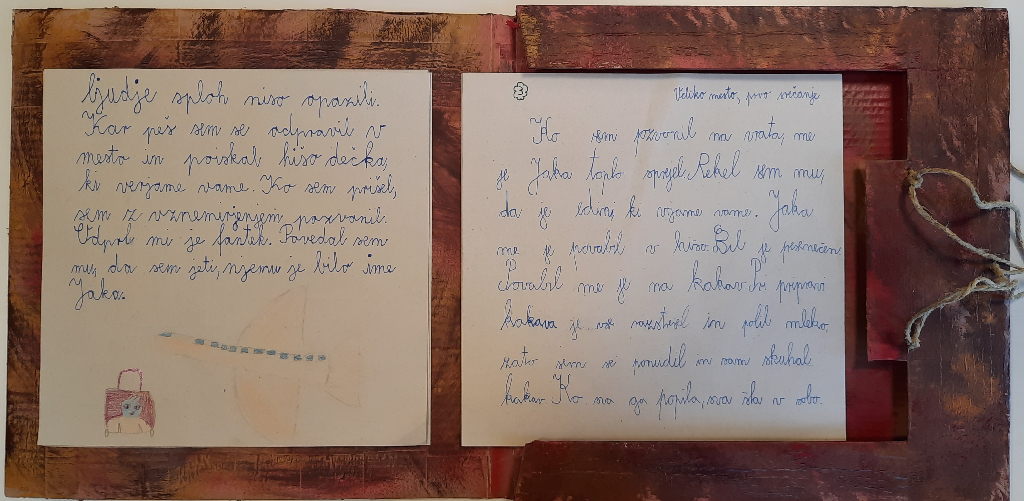 ljudje sploh niso opazili.
Kar peš sem se odpravil v
mesto in poiskal hišo dečka,
ki verjame vame. Ko sem prišel,
sem z vznemirjenjem pozvonil.
Odprl mi je fantek. Povedal sem
mu, da sem jeti, njemu je bilo ime
Jaka.
3
Veliko mesto, prvo srečanje
Ko sem pozvonil na vrata, me
je Jaka toplo sprejel. Rekel sem mu,
da je edini, ki verjame vame. Jaka
me je povabil v hišo. Bil je presenečen.
Povabil me je na kakav. Pri pripravi
kakava je vse raztresel in polil mleko,
zato sem se ponudel in sam skuhal
kakav. Ko sva ga popila, sva šla v sobo.